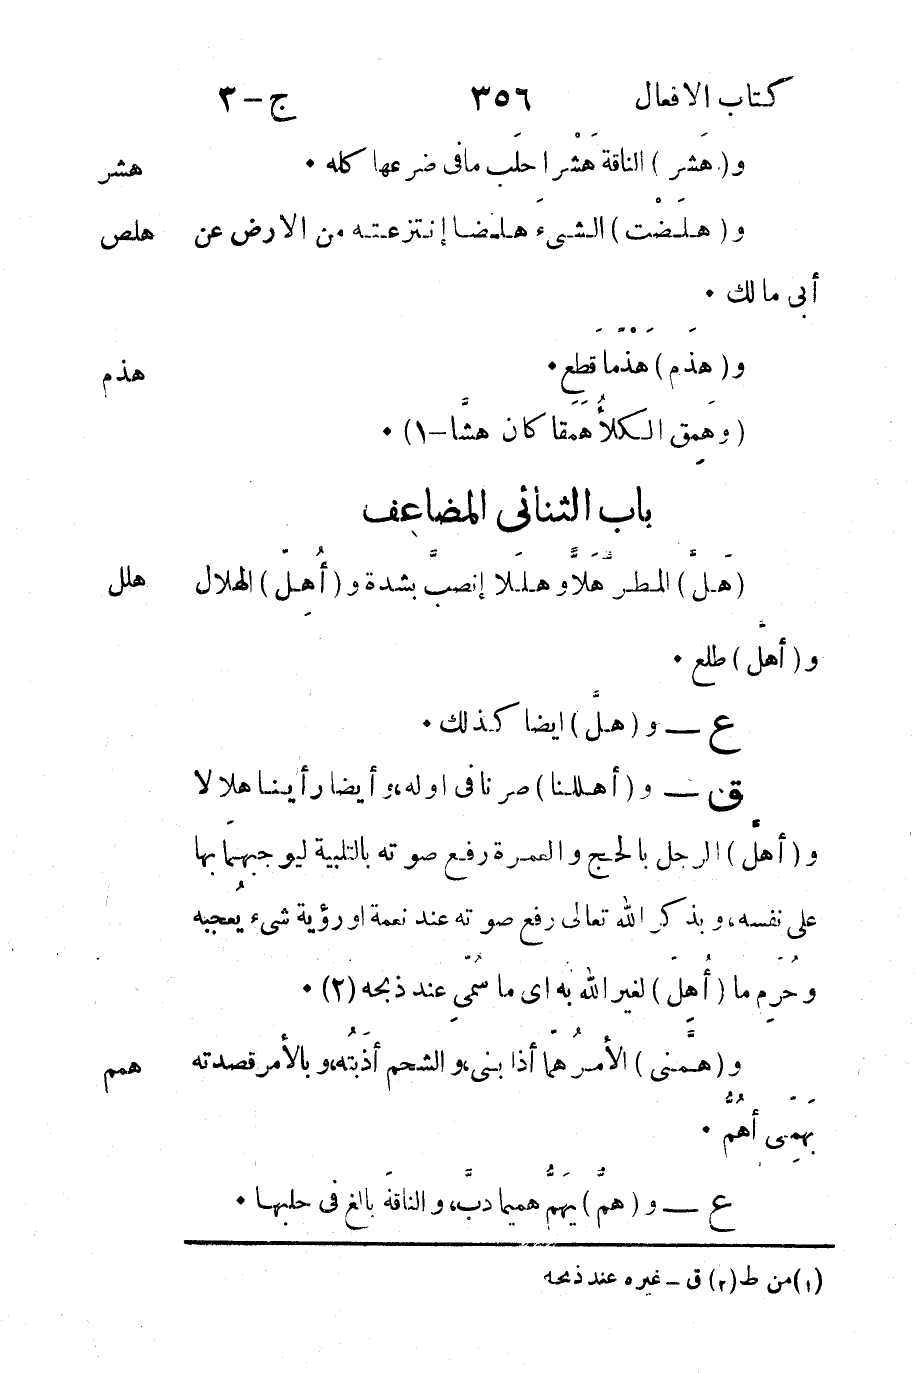 كتاب الافعال ٣٥٦ ج – ٣
و ( هَشَر ) الناقة هَشْرا حلَب مافى ضرعها كله • هشر
و ( هلَضْت ) الشىء هلَضا إنتزعته من الارض عن هلص
أبى مالك •
و ( هذَم ) هَذْمًا قطَع • هذم
( وهَمِق الكلأُ هَمَقا كان هشًّا – ١ ) •
باب الثنائى المضاعف
( هَلَّ ) المطرُ هَلًّا وهلَلا إنصبَّ بشدة و ( أُهِلّ ) الهلال هلل
و ( أهلَّ ) طلع •
ع — و ( هلَّ ) ايضا كذلك •
ق — و ( أهللنا ) صرنا فى اوله، وأيضا رأينا هلالا
و ( أهلَّ ) الرجل بالحج والعمرة رفَع صوته بالتلبية ليوجبهما بها
على نفسه، وبذكر الله تعالى رفع صوته عند نعمة اورؤية شىء يُعجبه
وحُرِم ما ( أُهِلَّ ) لغير الله به اى ما سُمّى عند ذبحه (٢) •
و ( همَّنى ) الأمرُ همّا أذابنى، والشحم أذَبتُه، وبالأمر قصدته همم
بهَمِّى أهُمُّ •
ع — و ( همَّ ) يهَمُّ هميما دبَّ، والناقةَ بالغ فى حلبها •
(١) من ط (٢) ق – غيره عند ذبحه